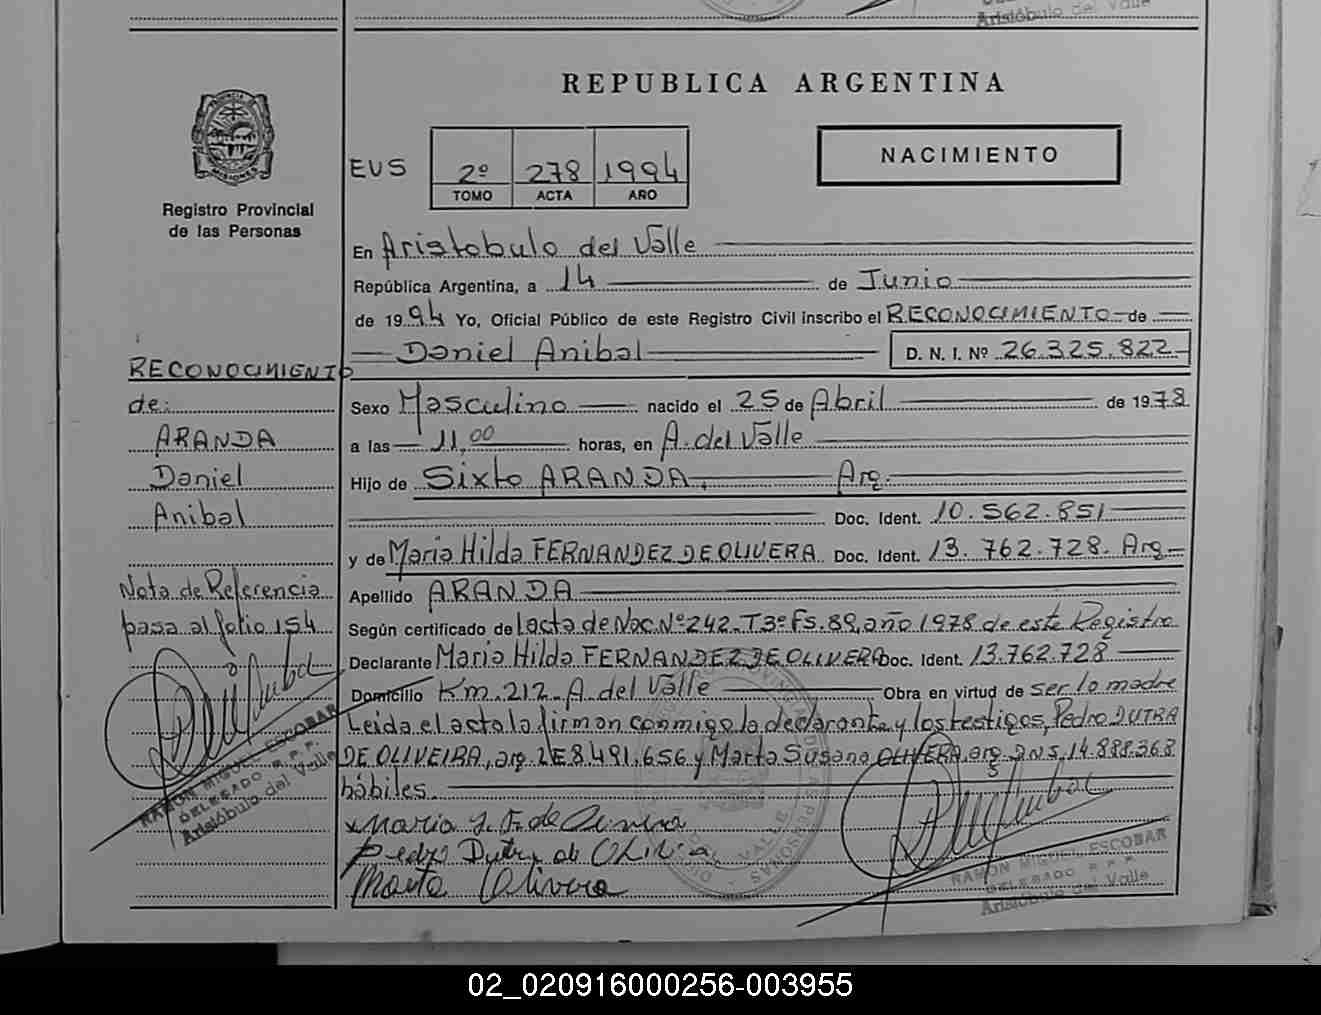 Aristóbulo del Valle
REPUBLICA ARGENTINA
PROVINCIA
MISIONES
Registro Provincial
de las Personas
EUS
2º 278 1994
TOMO ACTA AÑO
NACIMIENTO
En Aristobulo del Valle
República Argentina, a 14 de Junio
de 1994 Yo, Oficial Público de este Registro Civil inscribo el RECONOCIMIENTO de
Daniel Anibal D. N. I. Nº 26.325.822
Sexo Masculino nacido el 25 de Abril de 1978
a las 11,00 horas, en A. del Valle
Hijo de Sixto ARANDA, Arg.
Doc. Ident. 10.562.851
y de Maria Hilda FERNANDEZ DE OLIVERA Doc. Ident. 13.762.728. Arg
Apellido ARANDA
Según certificado de Lacta de Nac. Nº 242 - T3º Fs. 89, año 1978 de este Registro
Declarante Maria Hilda FERNANDEZ DE OLIVERA Doc. Ident. 13.762.728
Domicilio Km. 212 - A. del Valle Obra en virtud de ser la madre
Leida el acta la firman conmigo la declarante y los testigos, Pedro DUTRA
DE OLIVEIRA, arg. LE 8.491.656 y Marta Susana OLIVERA, arg. DNI. 14.888.368
hábiles.
RECONOCIMIENTO
de:
ARANDA
Daniel
Anibal
Nota de Referencia
pasa al folio 154
RAMON MIGUEL ESCOBAR
DELEGADO R.P.P.
Aristóbulo del Valle
Maria
Pedro Dutra de
Marta Olivera
RAMON MIGUEL ESCOBAR
DELEGADO R.P.P.
Aristóbulo del Valle
02_020916000256-003955